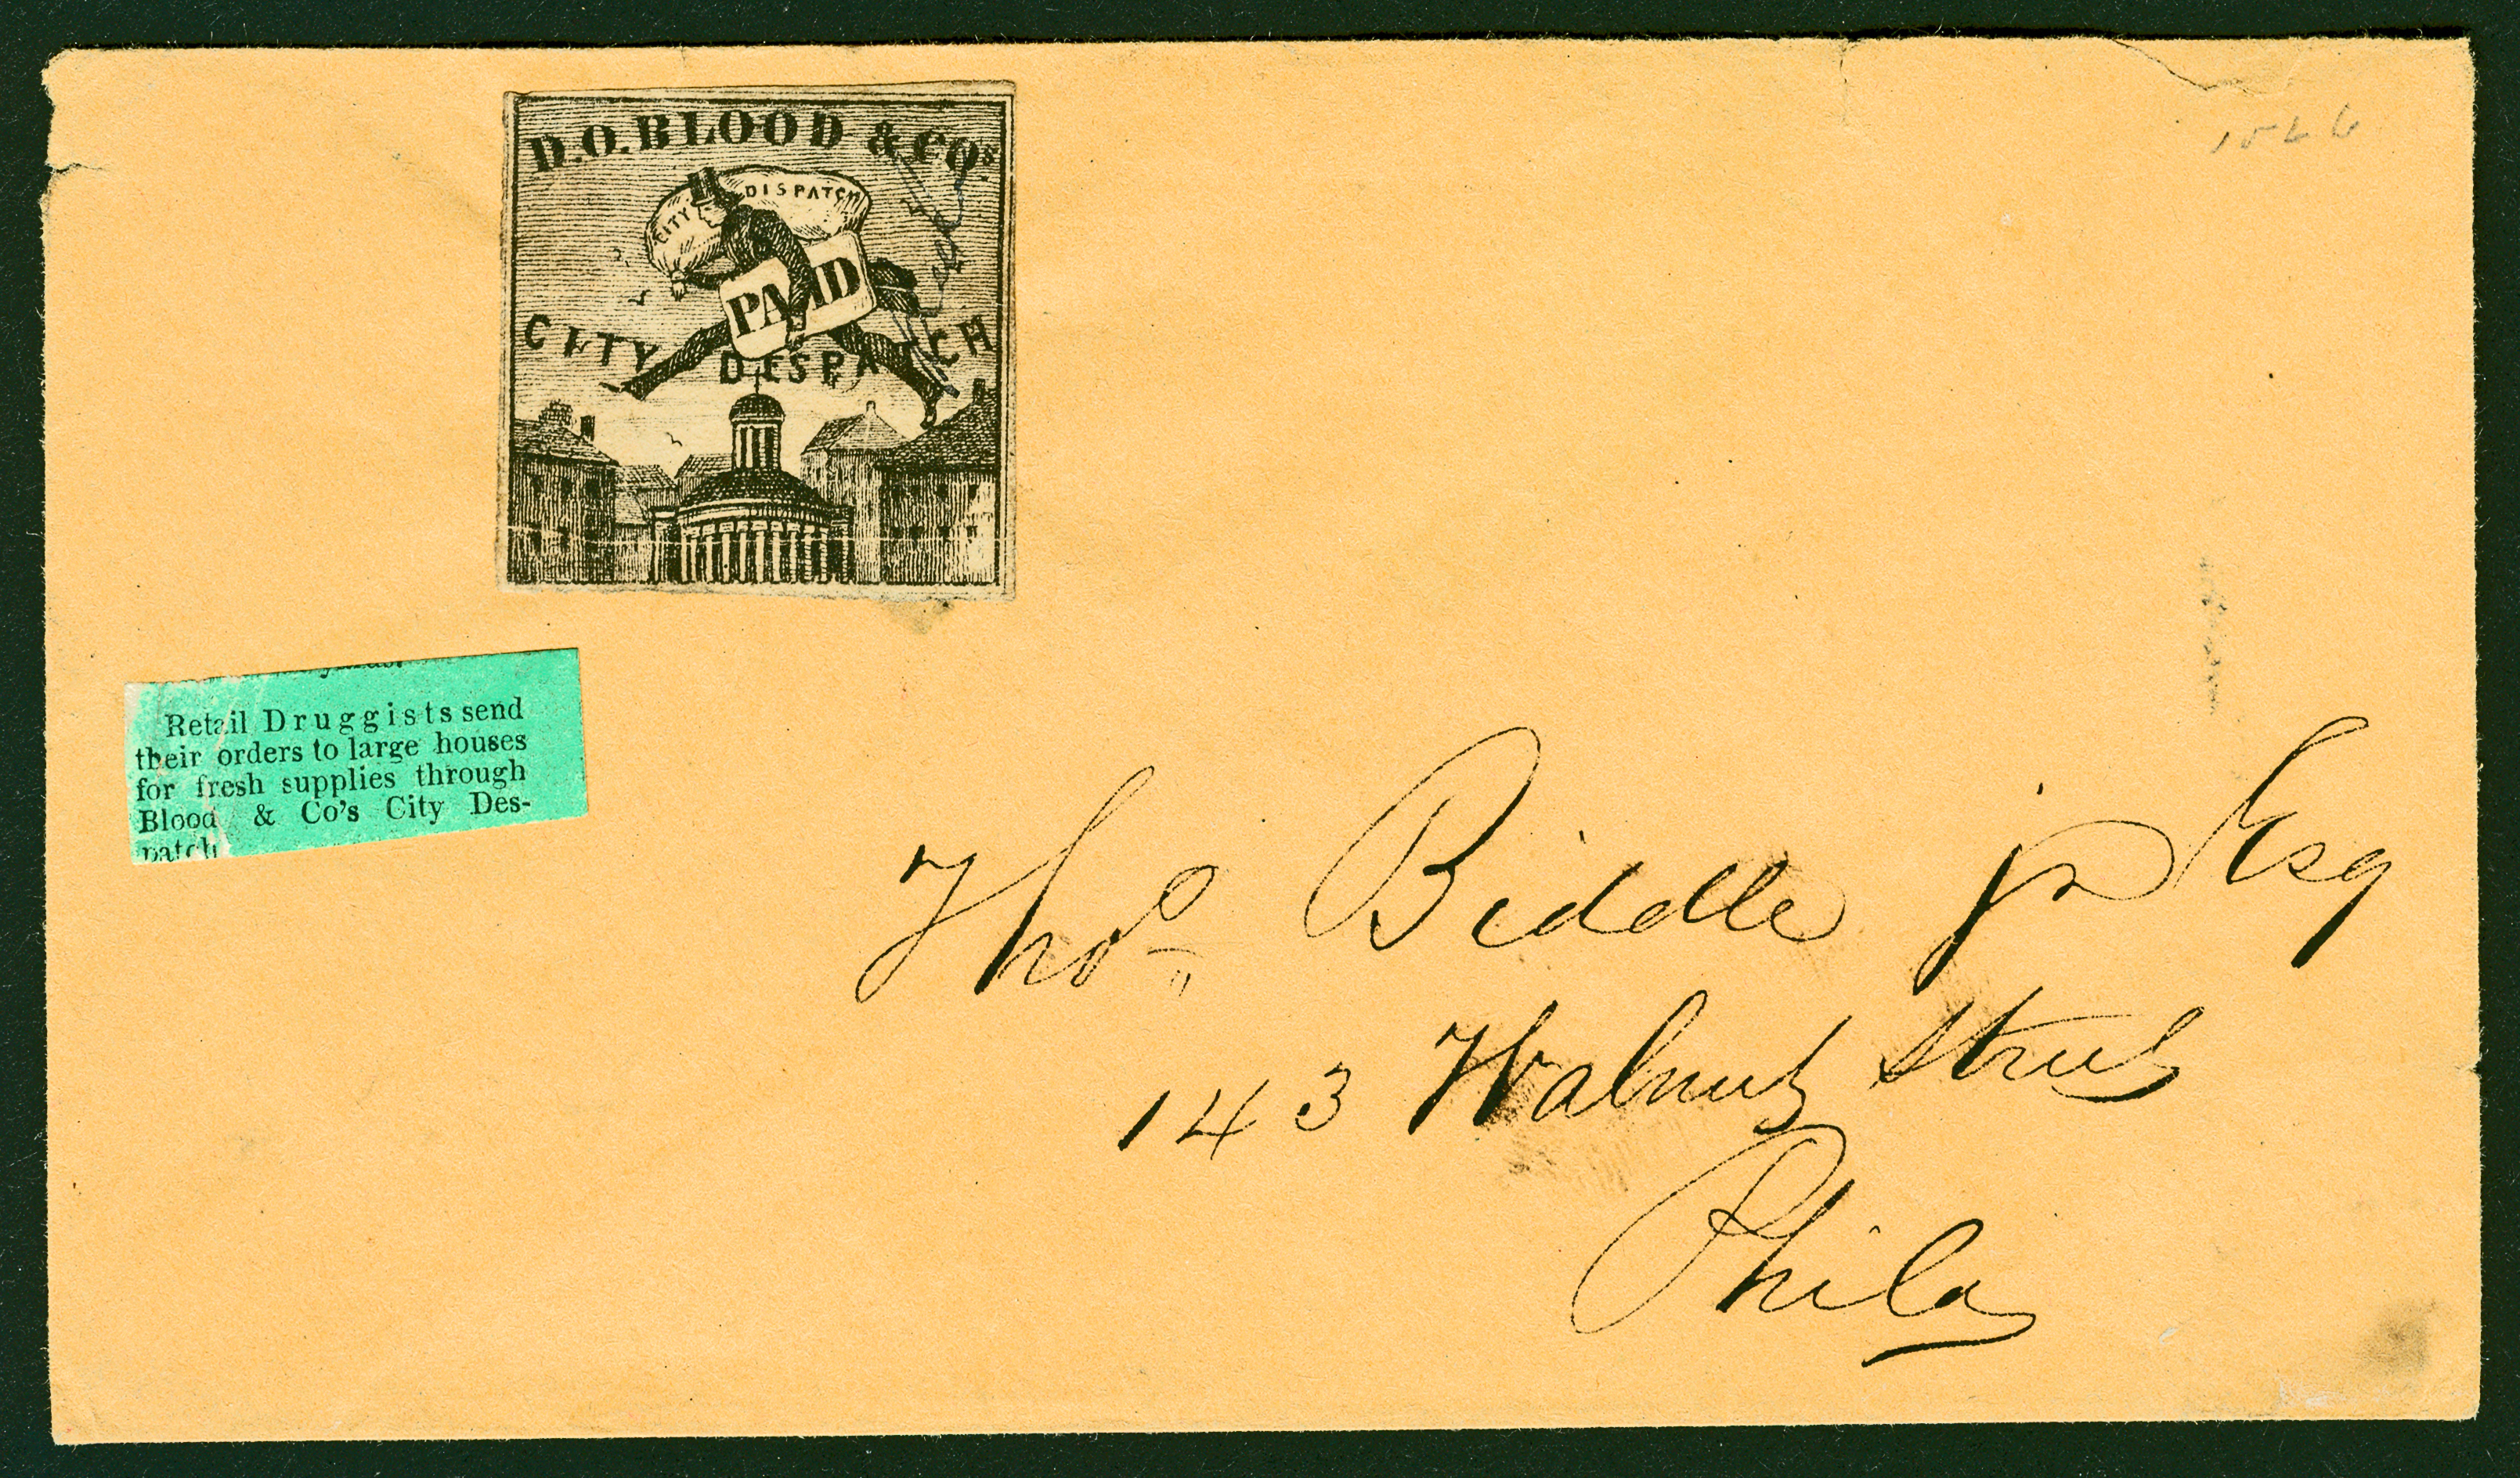 D.O.BLOOD & COs
CITY DISPATCH
PAID
CITY DESPATCH
Retail Druggists send
their orders to large houses
for fresh supplies through
Blood & Co's City Des-
patch
Thos Biddle jr Esq
143 Walnut Street
Phila